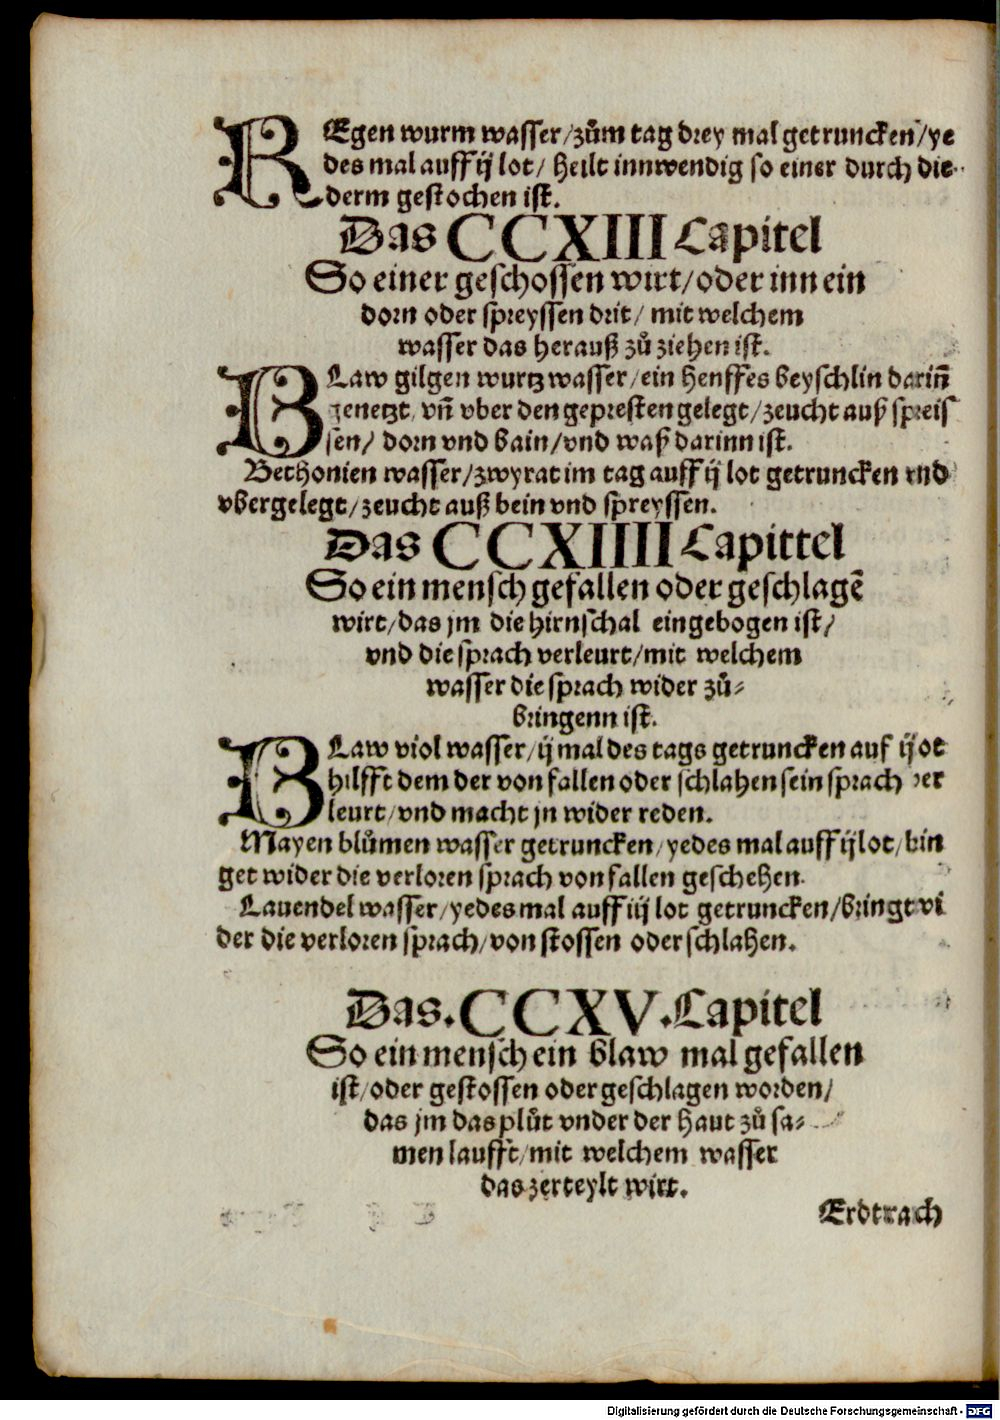 REgen wurm wasser/zům tag drey mal getruncken/ye
des mal auff ij lot/ heilt innwendig so einer durch die
derm gestochen ist.
Das CCXIII Capitel
So einer geschossen wirt/oder inn ein
dorn oder spreyssen drit/ mit welchem
wasser das herauß zů ziehen ist.
BLaw gilgen wurtz wasser/ein henffes beyschlin darin̄
genetzt, vn̄ vber den gepresten gelegt/zeucht auß spreis
sen/ dorn vnd bain/vnd waß darinn ist.
Bethonien wasser/zwyrat im tag auff ij lot getruncken vnd
vbergelegt/zeucht auß bein vnd spreyssen.
Das CCXIIII Capittel
So ein mensch gefallen oder geschlagē
wirt/das jm die hirnschal eingebogen ist/
vnd die sprach verleurt/mit welchem
wasser die sprach wider zů⸗
bringenn ist.
BLaw viol wasser/ij mal des tags getruncken auf ij ot
hilfft dem der von fallen oder schlahen sein sprach ver
leurt/vnd macht jn wider reden.
Mayen blůmen wasser getruncken/yedes mal auff ij lot/bin
get wider die verloren sprach von fallen geschehen.
Lauendel wasser/yedes mal auff iij lot getruncken/bringt wi
der die verloren sprach/von stossen oder schlahen.
Das.CCXV.Capitel
So ein mensch ein blaw mal gefallen
ist/oder gestossen oder geschlagen worden/
das jm das plůt vnder der haut zů sa⸗
men laufft/mit welchem wasser
das zerteylt wirt.
Erdtrach
Digitalisierung gefördert durch die Deutsche Forschungsgemeinschaft - DFG